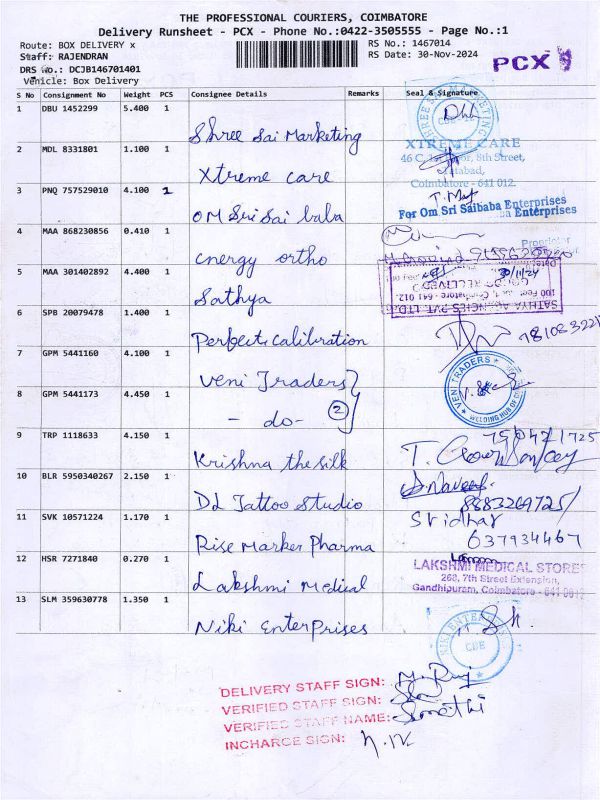 THE PROFESSIONAL COURIERS, COIMBATORE
Delivery Runsheet - PCX - Phone No.:0422-3505555 - Page No.:1
Route: BOX DELIVERY x
RS No.: 1467014
Staff: RAJENDRAN
RS Date: 30-Nov-2024
DRS No.: DCJB146701401
Vehicle: Box Delivery
PCX
S No Consignment No Weight PCS Consignee Details Remarks Seal & Signature
1 DBU 1452299 5.400 1
Shree Sai Marketing
2 MDL 8331801 1.100 1
Xtreme care
XTREME CARE
46 C, 1st Floor, 8th Street,
Coimbatore - 641 012.
3 PNQ 757529010 4.100 1
OM Sri Sai baba
For Om Sri Saibaba Enterprises
4 MAA 868230856 0.410 1
energy ortho
5 MAA 301402892 4.400 1
Sathya
30/11/24
SATHYA AGENCIES PVT. LTD.
6 SPB 20079478 1.400 1
Perfect calibration
7 GPM 5441160 4.100 1
Veni Traders
VENI TRADERS
8 GPM 5441173 4.450 1
- do - 2
9 TRP 1118633 4.150 1
Krishna the silk
10 BLR 5950340267 2.150 1
DL Tattoo Studio
8883269725
11 SVK 10571224 1.170 1
Sridhar
Rise Marker Pharma
637934467
12 HSR 7271840 0.270 1
Lakshmi Medical
LAKSHMI MEDICAL STORES
268, 7th Street Extension,
Gandhipuram, Coimbatore - 641 0012
13 SLM 359630778 1.350 1
Niki Enterprises
NIKI ENTERPRISES
CBE
DELIVERY STAFF SIGN:
VERIFIED STAFF SIGN:
VERIFIED STAFF NAME: Sumathi
INCHARGE SIGN: